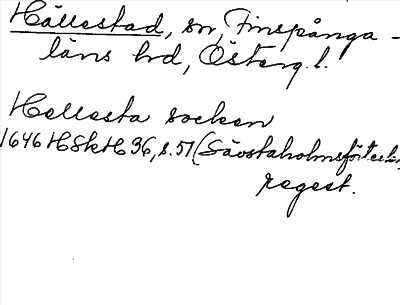 Hällestad, sn, Finspånga-
läns hd, Österg. l.
Hellesta socken
1646 HSkH 36, s. 51 (Sävstaholms
regest.